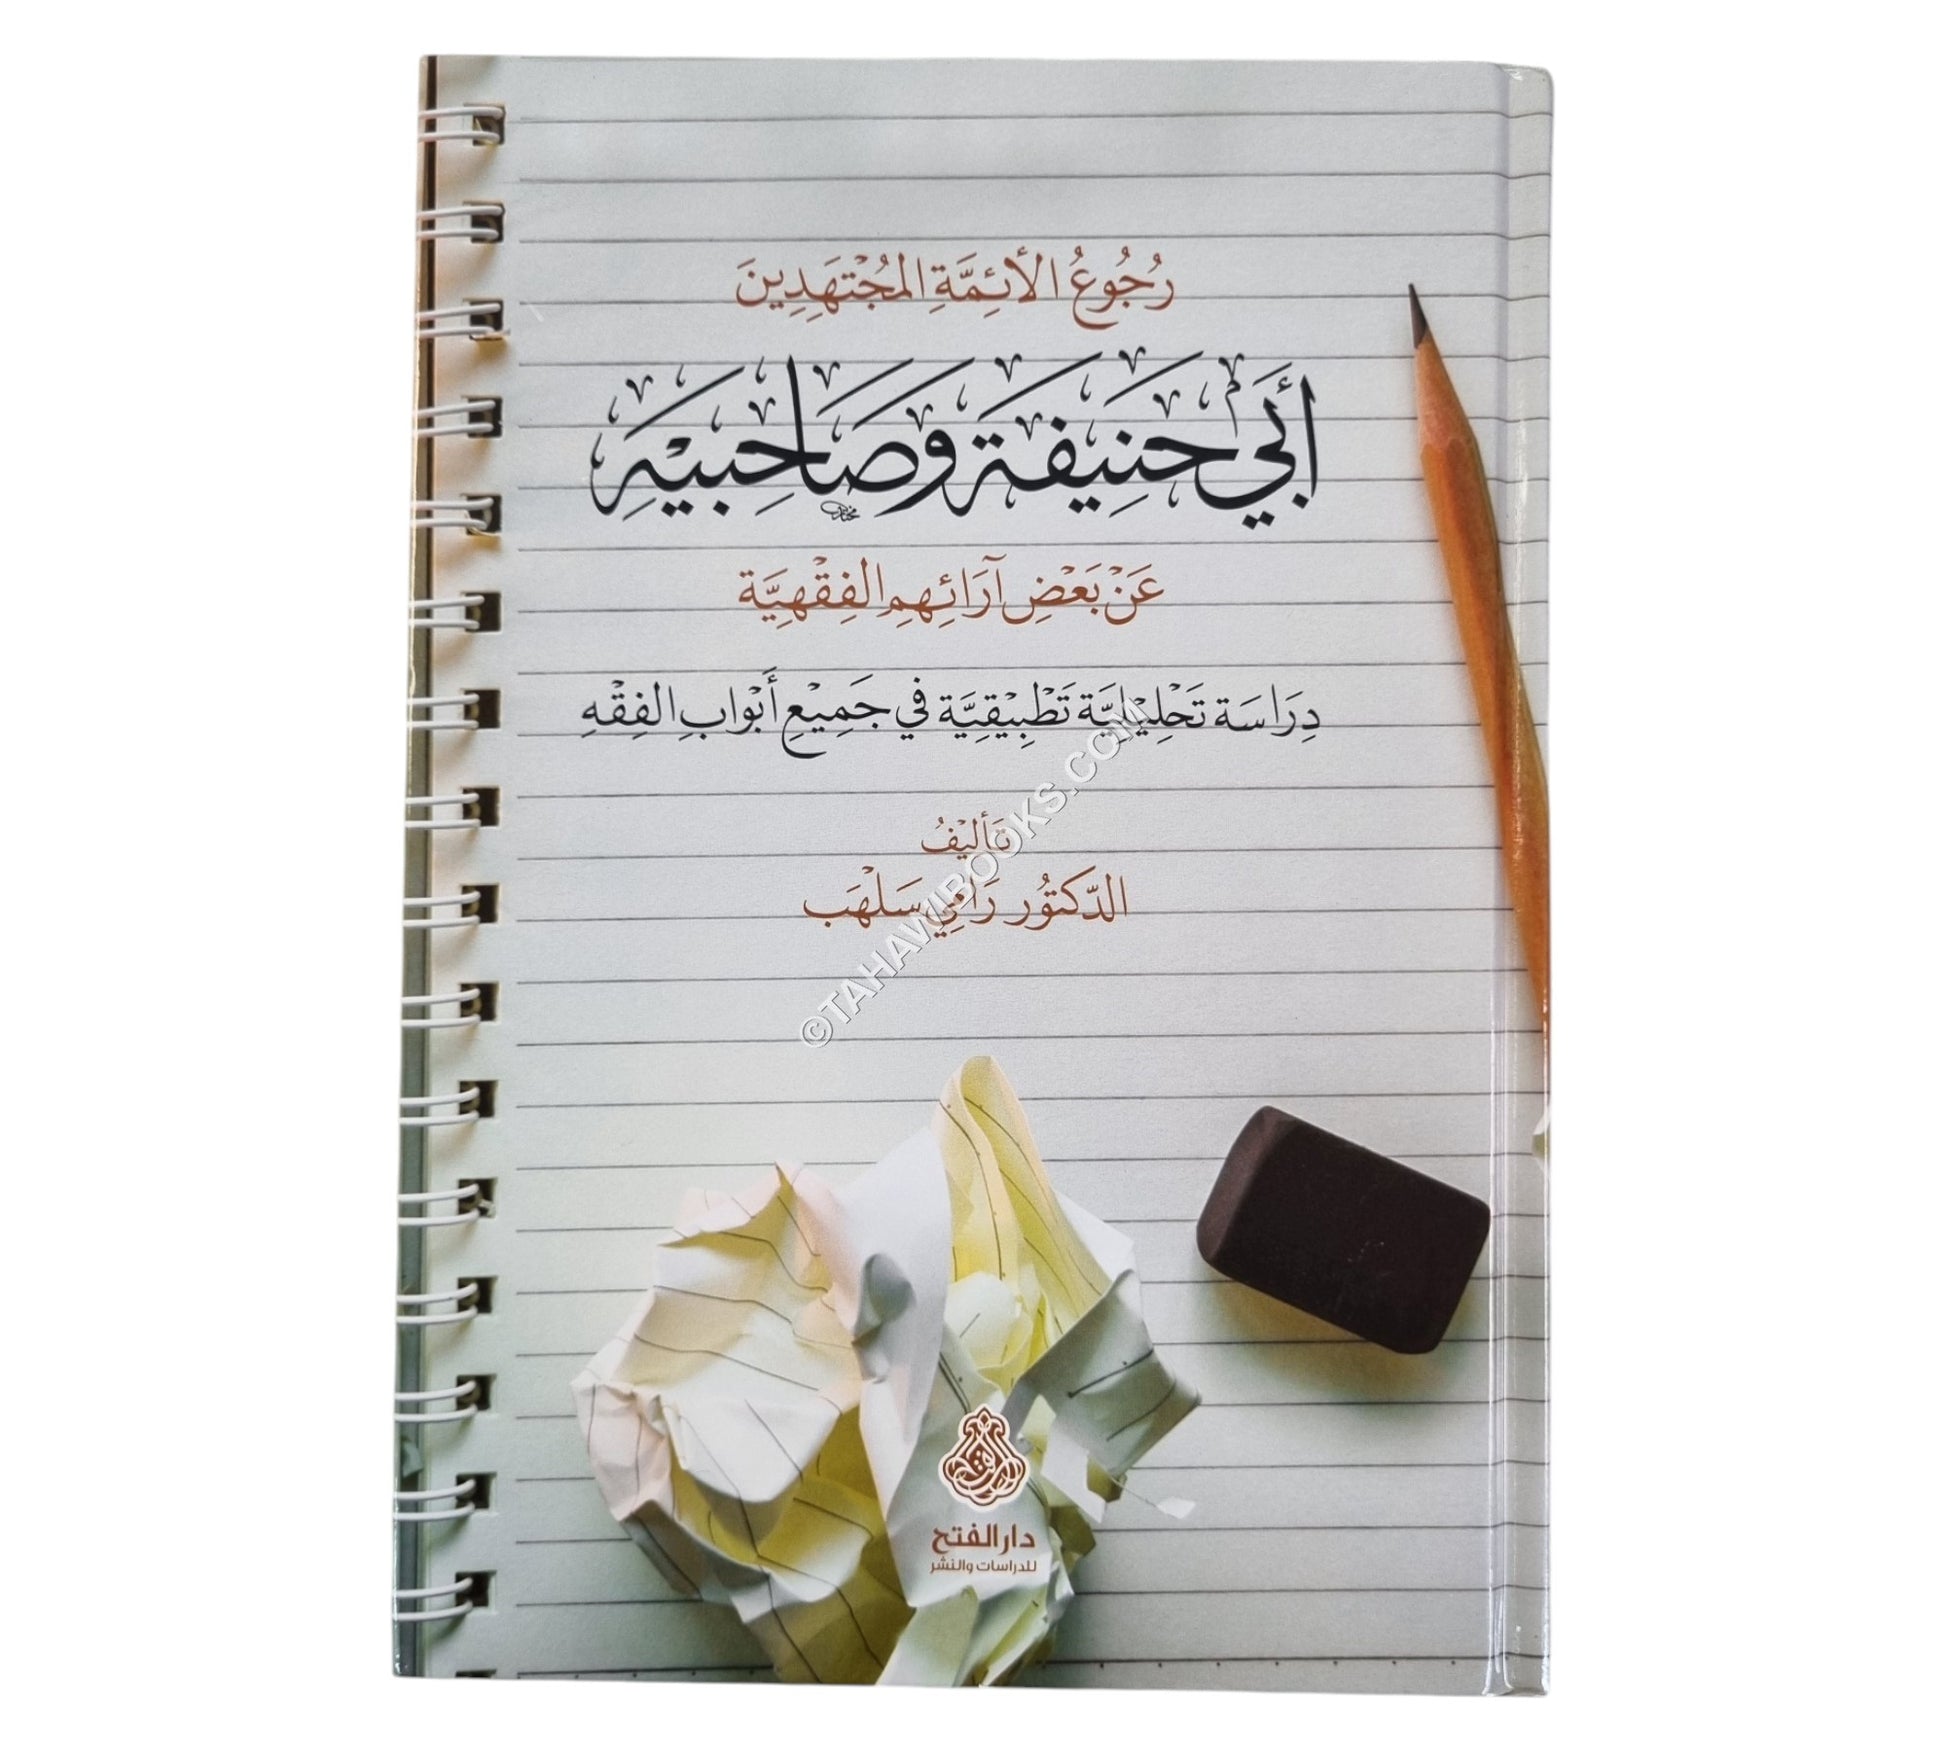 رُجُوعُ الأَئِمَّةِ المُجْتَهِدِينَ
أَبِي حَنِيفَةَ وَصَاحِبَيْهِ
عَنْ بَعْضِ آرَائِهِمِ الفِقْهِيَّة
دِرَاسَة تَحْلِيْلِيَّة تَطْبِيْقِيَّة فِي جَمِيْعِ أَبْوَابِ الفِقْهِ
تَأليْفُ
الدّكتُور رَامِي سَلْهَب
©TAHAWIBOOKS.COM
دار الفتح
للدراسات والنشر